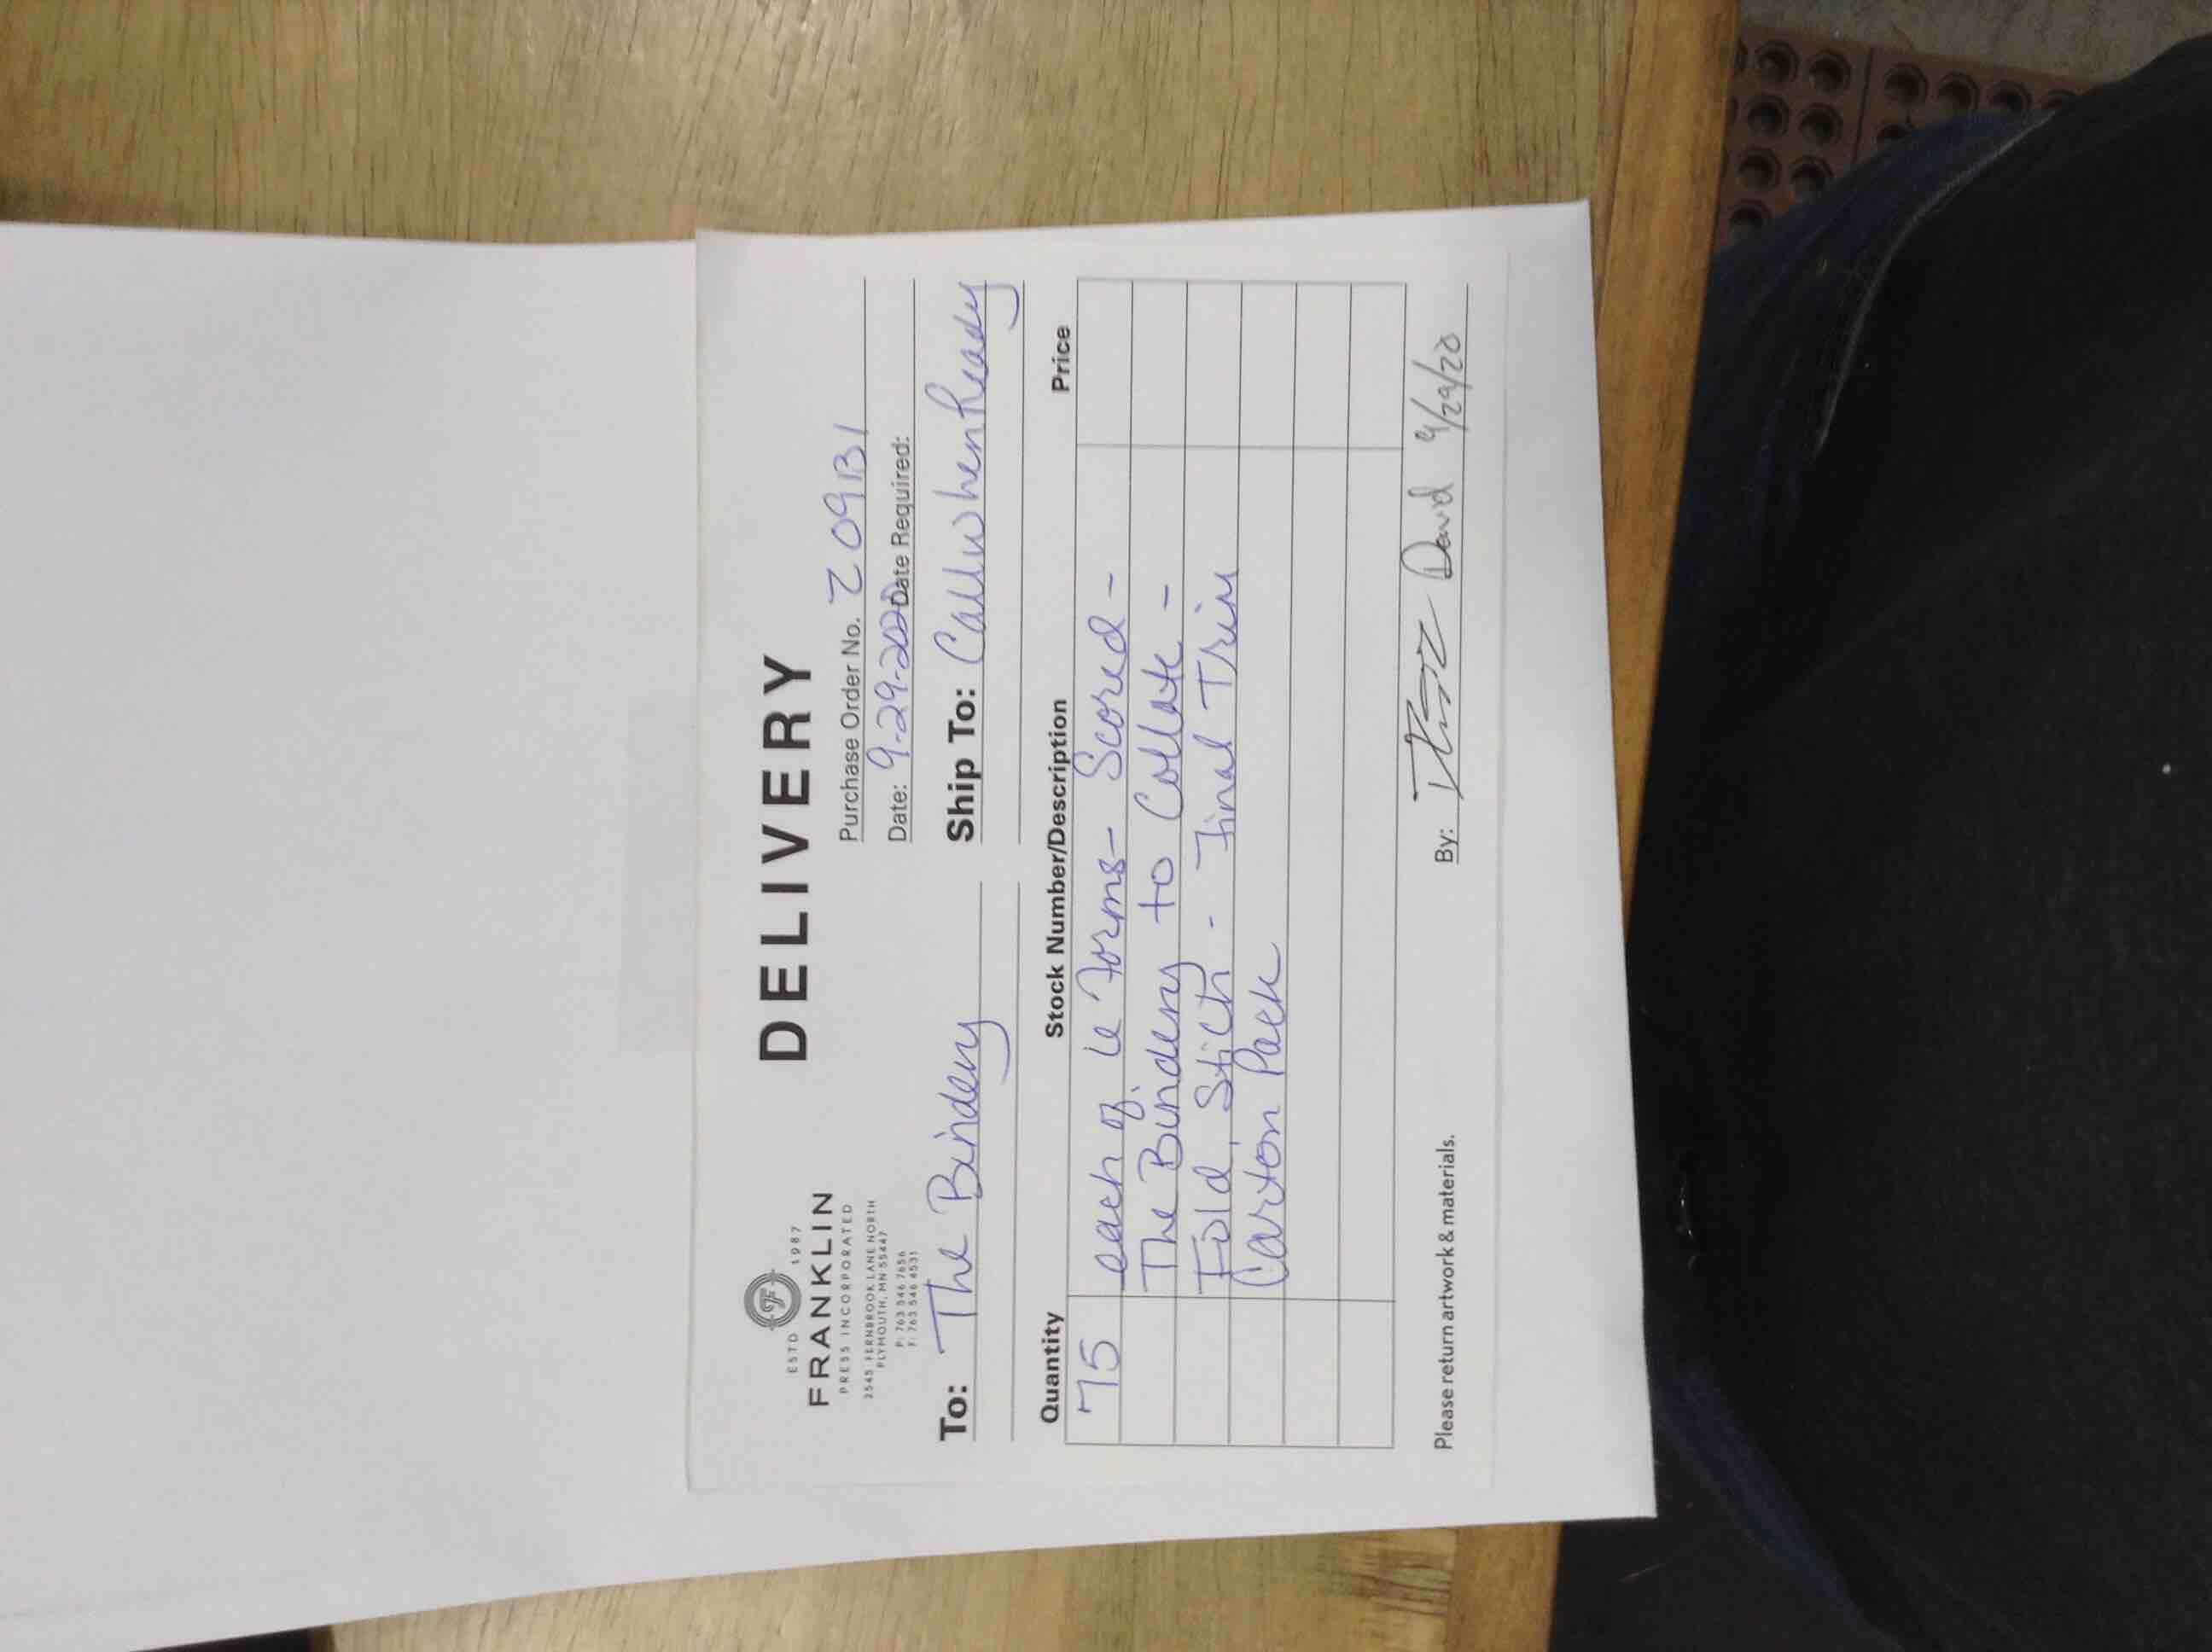 ESTD 1987
FRANKLIN
PRESS INCORPORATED
2545 FERNBROOK LANE NORTH
PLYMOUTH, MN 55447
P: 763 546 7656
F: 763 546 4531
DELIVERY
Purchase Order No. Z09131
Date: 9-29-2020 Date Required:
To: The Bindery
Ship To: Call when Ready
Quantity Stock Number/Description Price
75 each of 6 Forms - Scored -
The Bindery to Collate -
Fold, Stich - Final Trim
Carton Pack
Please return artwork & materials.
By: David 9/29/20